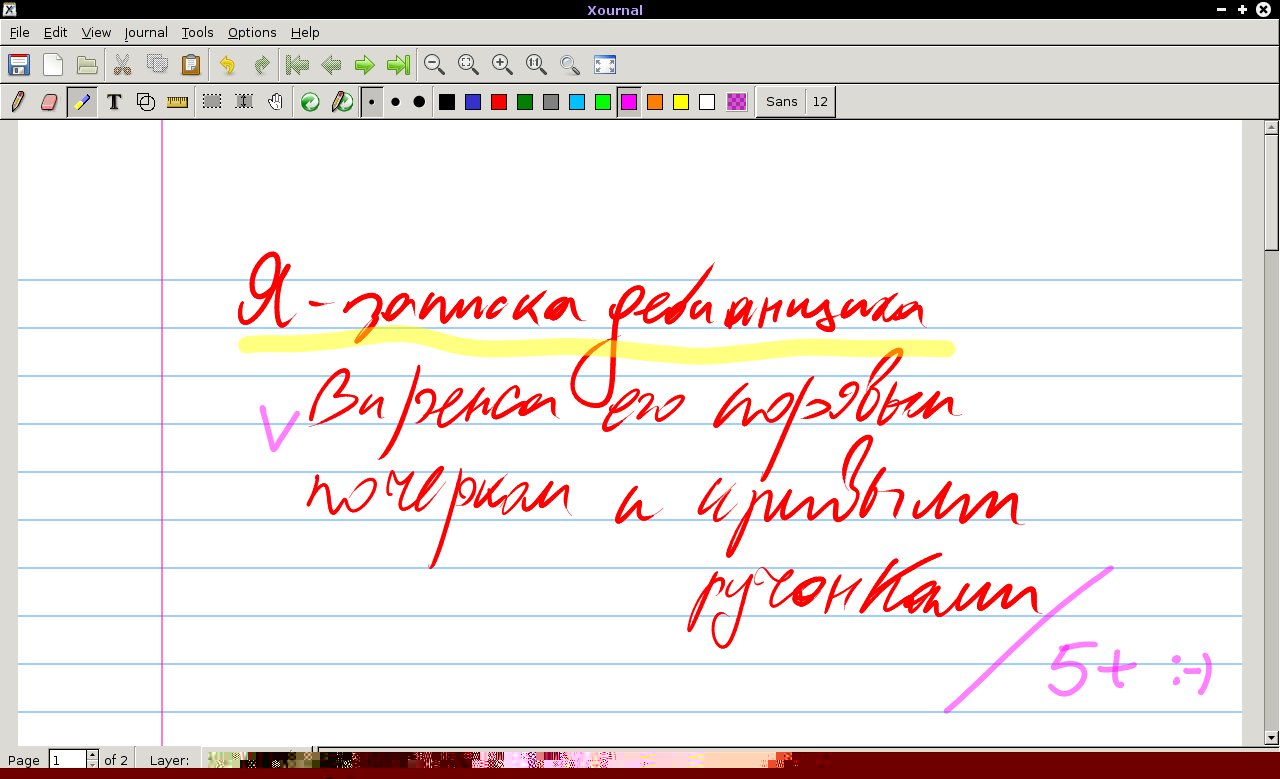 Xournal
File Edit View Journal Tools Options Help
T Sans 12
Я - записка дебианщика
V Виренса его корявым
почерком и кривыми
ручонками
5+ :-)
Page 1 of 2 Layer: